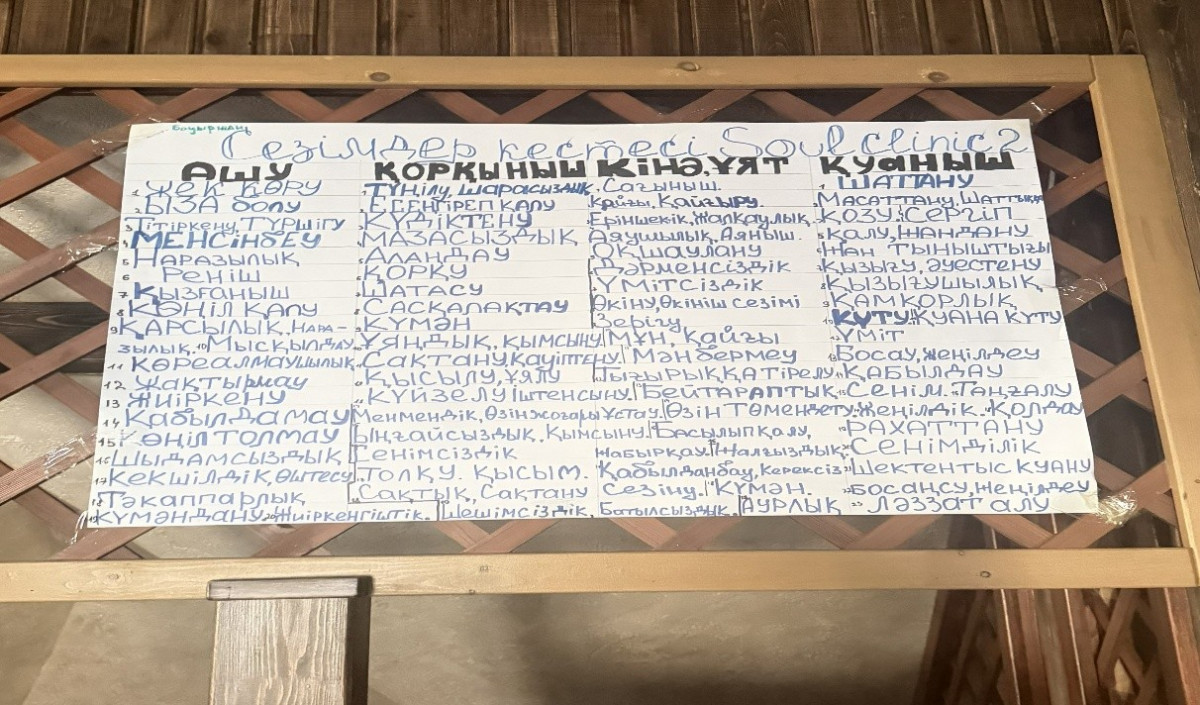 бауыржан
Сезімдер кестесі Soul clinic 2
АШУ
1. ЖЕК КӨРУ
2. ЫЗА болу
3. Тітіркену, ТҮРШІГУ
4. МЕНСІНБЕУ
5. НАРАЗЫЛЫҚ
6. Реніш
7. Қызғаныш
8. КӨҢІЛ ҚАЛУ
9. ҚАРСЫЛЫҚ. НАРА-
зылық. 10 Мысқылдау
11 көреалмаушылық
12 жақтырмау
13 жиіркену
14 Қабылдамау
15 Көңіл толмау
16 Шыдамсыздық
17 Кекшілдік, өштесу
18 Тәкаппарлық
19 күмәндану. 20 жиіркенгіштік.
ҚОРҚЫНЫШ
ТҮҢІЛУ, шарасыздық
ЕСЕҢГІРЕП ҚАЛУ
КҮДІКТЕНУ
МАЗАСЫЗДЫҚ
АЛАҢДАУ
ҚОРҚУ
ШАТАСУ
САСҚАЛАҚТАУ
КҮМӘН
ҰЯҢДЫҚ, ҚЫМСЫНУ
Сақтану, қауіптену.
ҚЫСЫЛУ, ҰЯЛУ
КҮЙЗЕЛУ Іштенсыну.
Менмендік, Өзін жоғары ұстау.
Ыңғайсыздық. Қымсыну.
Сенімсіздік
Толқу. Қысым.
Сақтық, Сақтану
Шешімсіздік.
КІНӘ, ҰЯТ
Сағыныш.
Қайғы, Қайғыру.
Еріншекік, Жалқаулық.
Аяушылық. Аяныш.
Оқшаулану
Дәрменсіздік
ҮМІТСІЗДІК
Өкіну, Өкініш сезімі
Зерігу
Мұң, Қайғы
Мән бермеу
Тығырыққа тірелу
Бейтараптық
Өзін Төмендету
Басылып қалу,
Жабырқау. Жалғыздық.
Қабылданбау, Керексіз
Сезіну. Күмән.
Батылсыздық. АУРЛЫҚ
ҚУАНЫШ
1. ШАТТАНУ
Масаттану, Шаттық
ҚОЗУ. СЕРГІП
қалу, жандану
жан тыныштығы
қызығу, әуестену
қызығушылық,
ҚАМҚОРЛЫҚ
КҮТУ. ҚУАНА КҮТУ
ҮМІТ
Босау, жеңілдеу
ҚАБЫЛДАУ
Сенім. Таңғалу
Жеңілдік. Қолдау
РАХАТТАНУ
Сенімділік
Шектентыс куану
Босаңсу, жеңілдеу
Ләззат алу